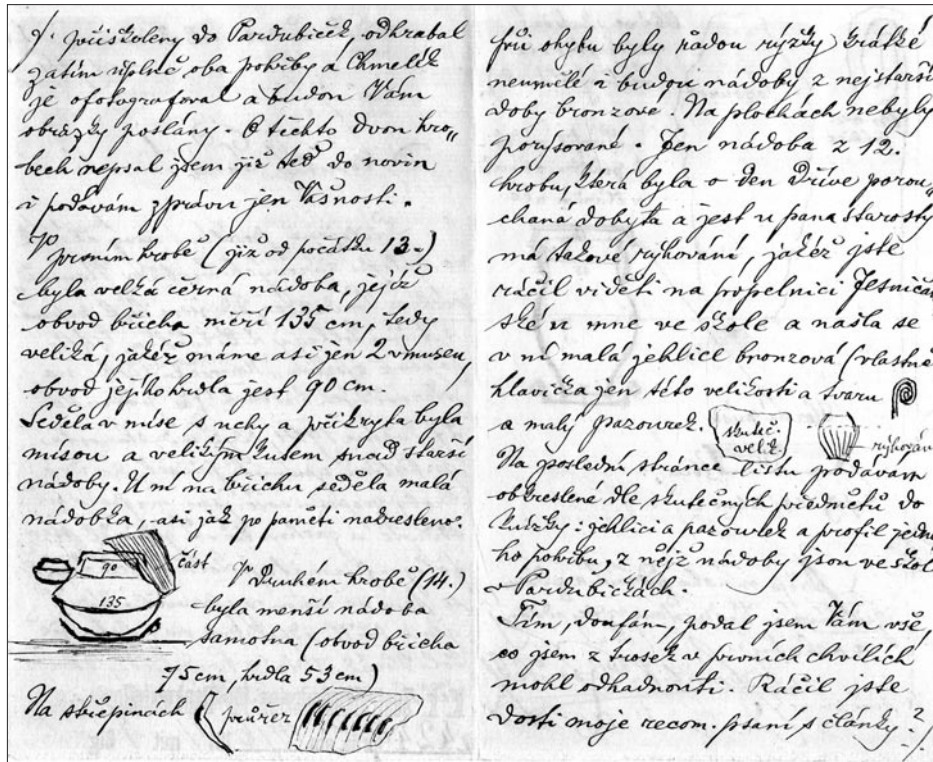 přiškoleny do Pardubiček, odhrabal
zatím úplně oba pohřby a Chmelík
je ofotografoval a budou Vám
obrázky poslány. O těchto dvou hro„
bech nepsal jsem již teď do novin
i podávám zprávu jen Vašnosti.
V prvním hrobě (již od počátku 13.)
byla velká černá nádoba, jejíž
obvod břicha měří 135 cm, tedy
veliká, jakéž máme asi jen 2 v museu,
obvod jejího hrdla jest 90 cm.
Seděla v míse s uchy a přikryta byla
mísou a velikým kusem snad starší
nádoby. U ní na břichu seděla malá
nádobka, asi jak po paměti nakresleno.
90
část
135
V druhém hrobě (14.)
byla menší nádoba
samotna (obvod břicha
75 cm, hrdla 53 cm)
Na střepinách
průřez
při ohybu byly řadou rýžky krátké
neumělé i budou nádoby z nejstarší
doby bronzové. Na plochách nebyly
porýsované. Jen nádoba z 12.
hrobu, která byla o den dříve porou„
chaná dobyta a jest u pana starosty
má takové rýhování, jakéž jste
ráčil viděti na popelnici Jesničan
ské u mne ve škole a našla se
v ní malá jehlice bronzová (vlastně
hlavička jen této velikosti a tvaru
a malý pazourek.
skuteč.
velik.
rýhování
Na poslední stránce listu podávám
obkreslené dle skutečných předmětů do
tužky: jehlici a pazourek a profil jedno
ho pohřbu, z nějž nádoby jsou ve škole
v Pardubičkách.
Tím, doufám, podal jsem Vám vše,
co jsem z trosek v prvních chvílích
mohl odhadnouti. Ráčil jste
dosti moje recom. psaní s články?